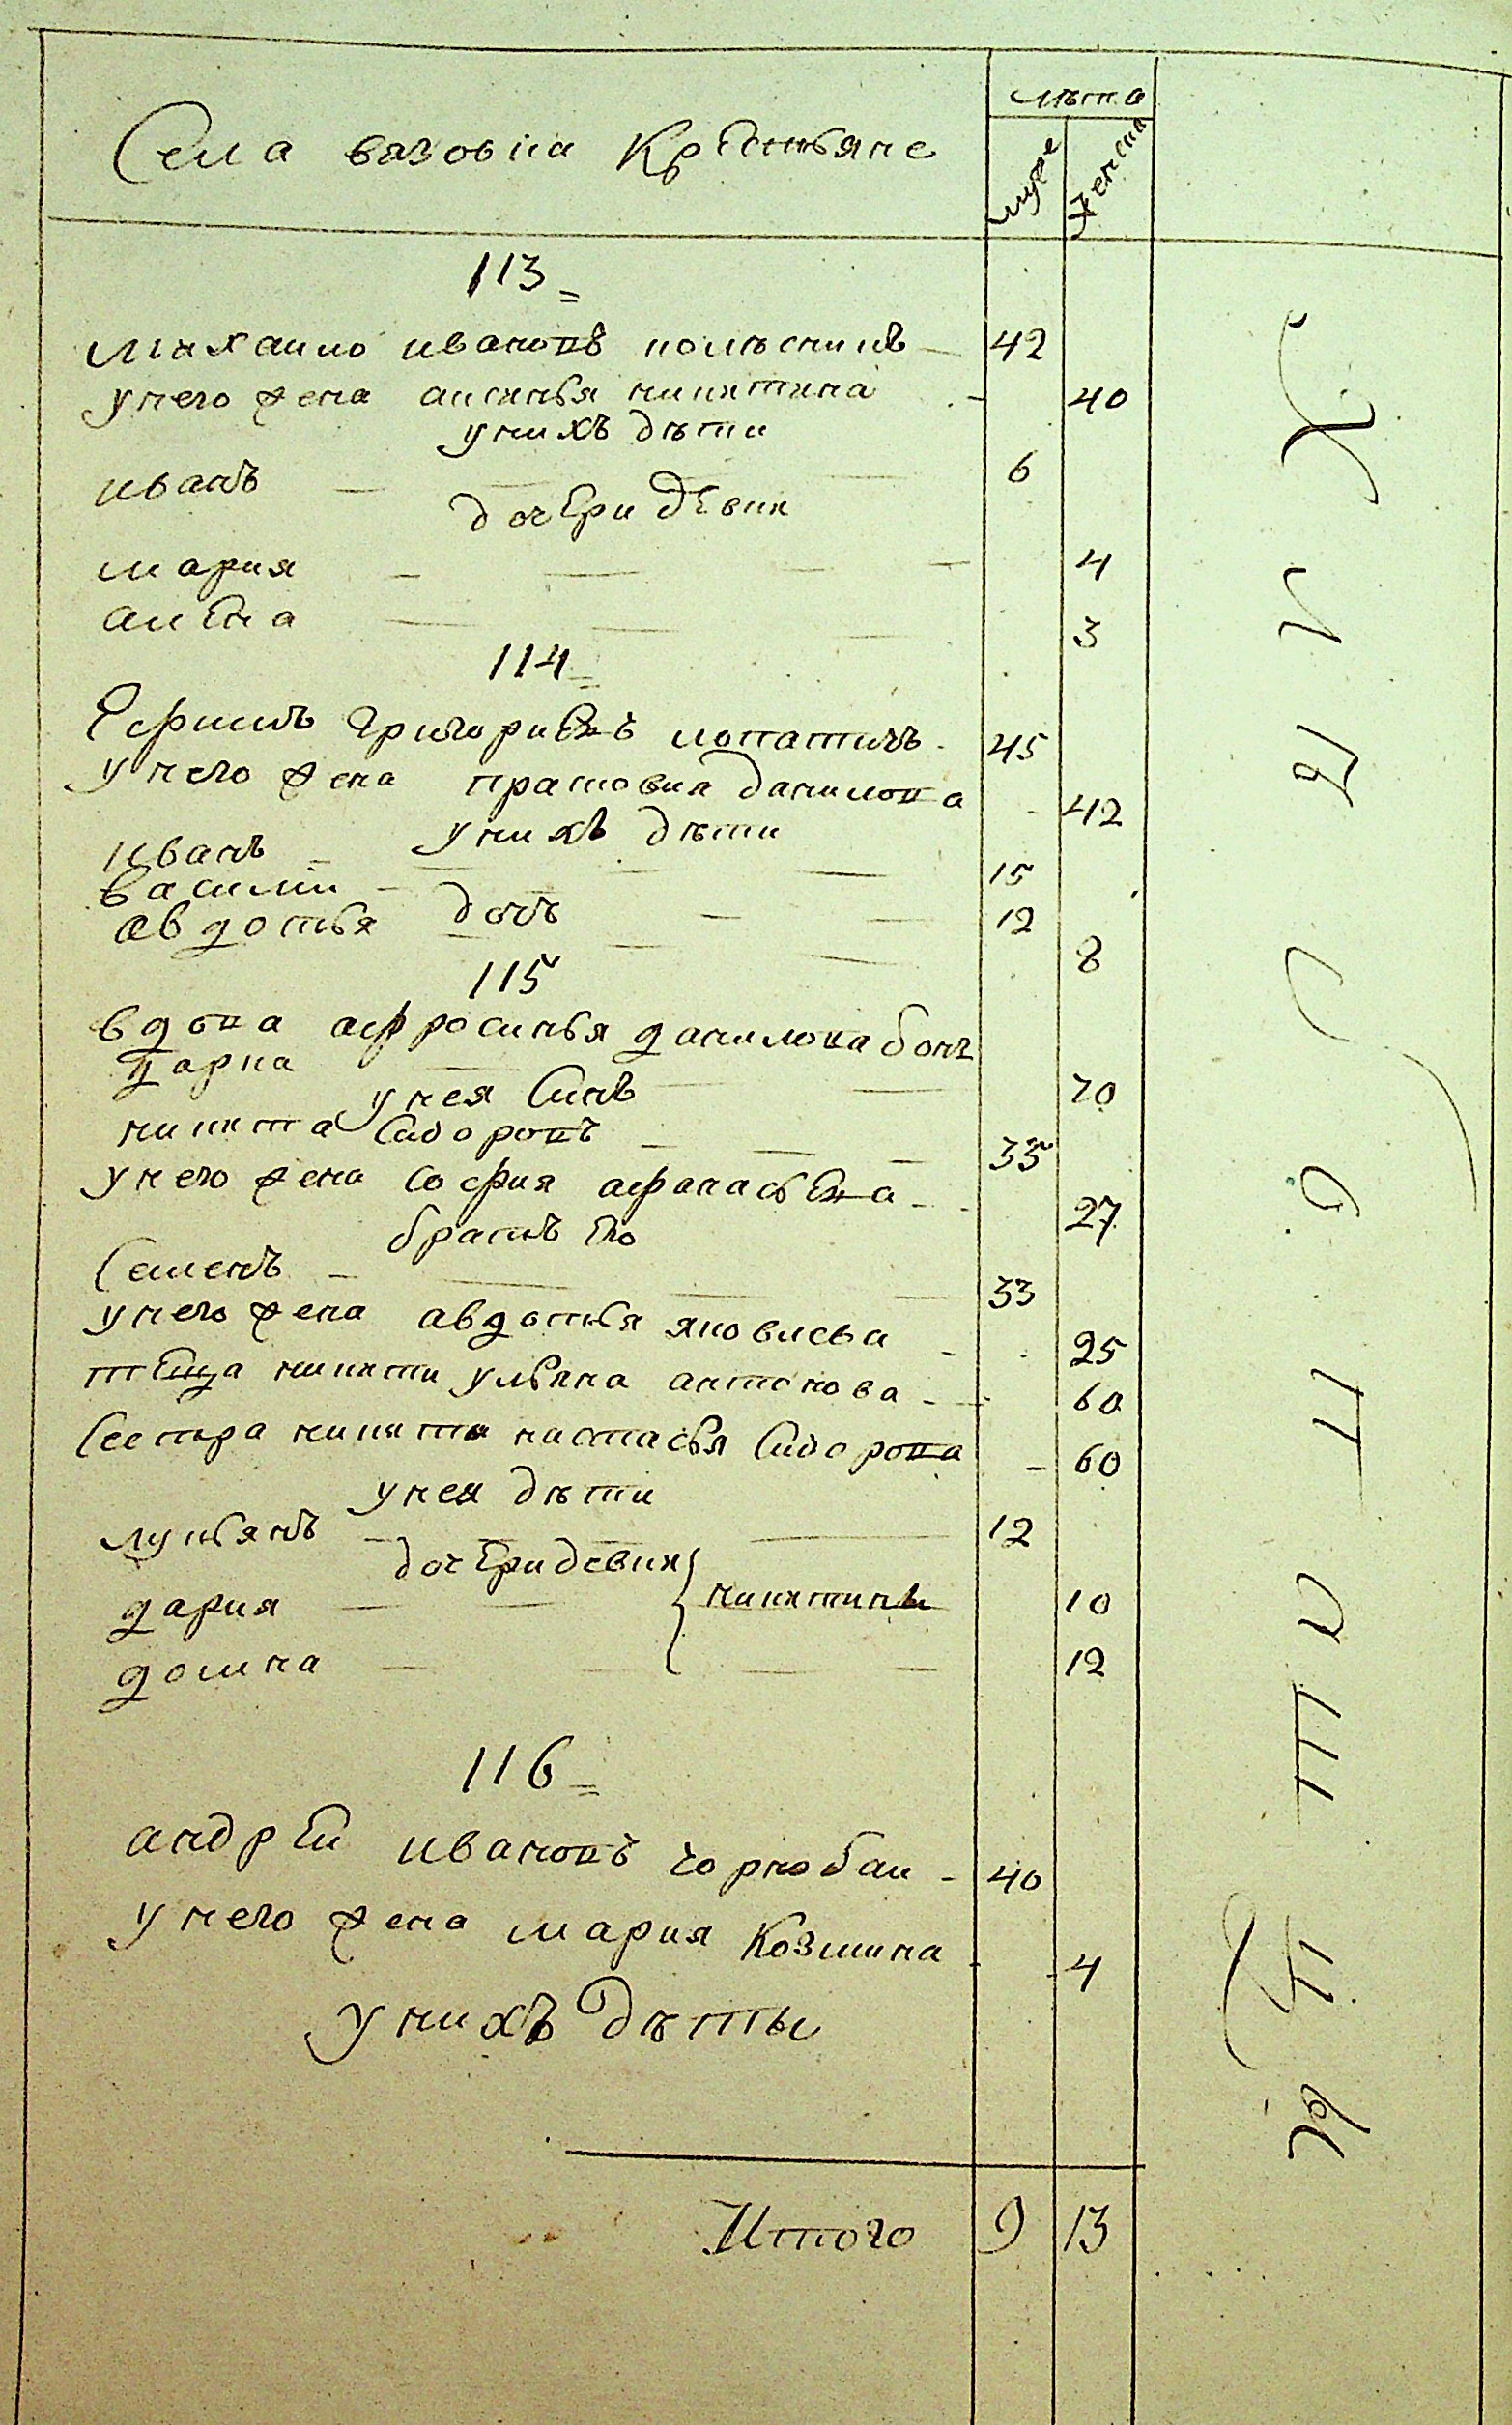 лѣта
Села вязовка Крестьяне
муже
женска
113
михаило ивановъ колѣсникъ 42
унего жена аксинья никитина 40
унихъ дѣти
иванъ 6
дочери девки
мария 4
алена 3
114
Ефимъ григориевъ лопатинъ 45
унего жена прасковия данилова 42
унихъ дѣти
иванъ 15
василии 12
авдотья дочь 8
115
вдова афросинья данилова
70
унея Синъ
никита Сидоровъ 35
унего жена софия афанасьева 27
братъ Его
Семенъ 33
унего жена авдотья яковлева 25
тЕща никити ульяна антонова 60
Сестра никити настасья Сидорова 60
унея дѣти
лукьянъ 12
дочери девки
дария никитини 10
домна 12
116
андрЕи ивановъ чорнобаи 40
унего жена мария Козмина 4
унихъ дѣты
Итого 9 13